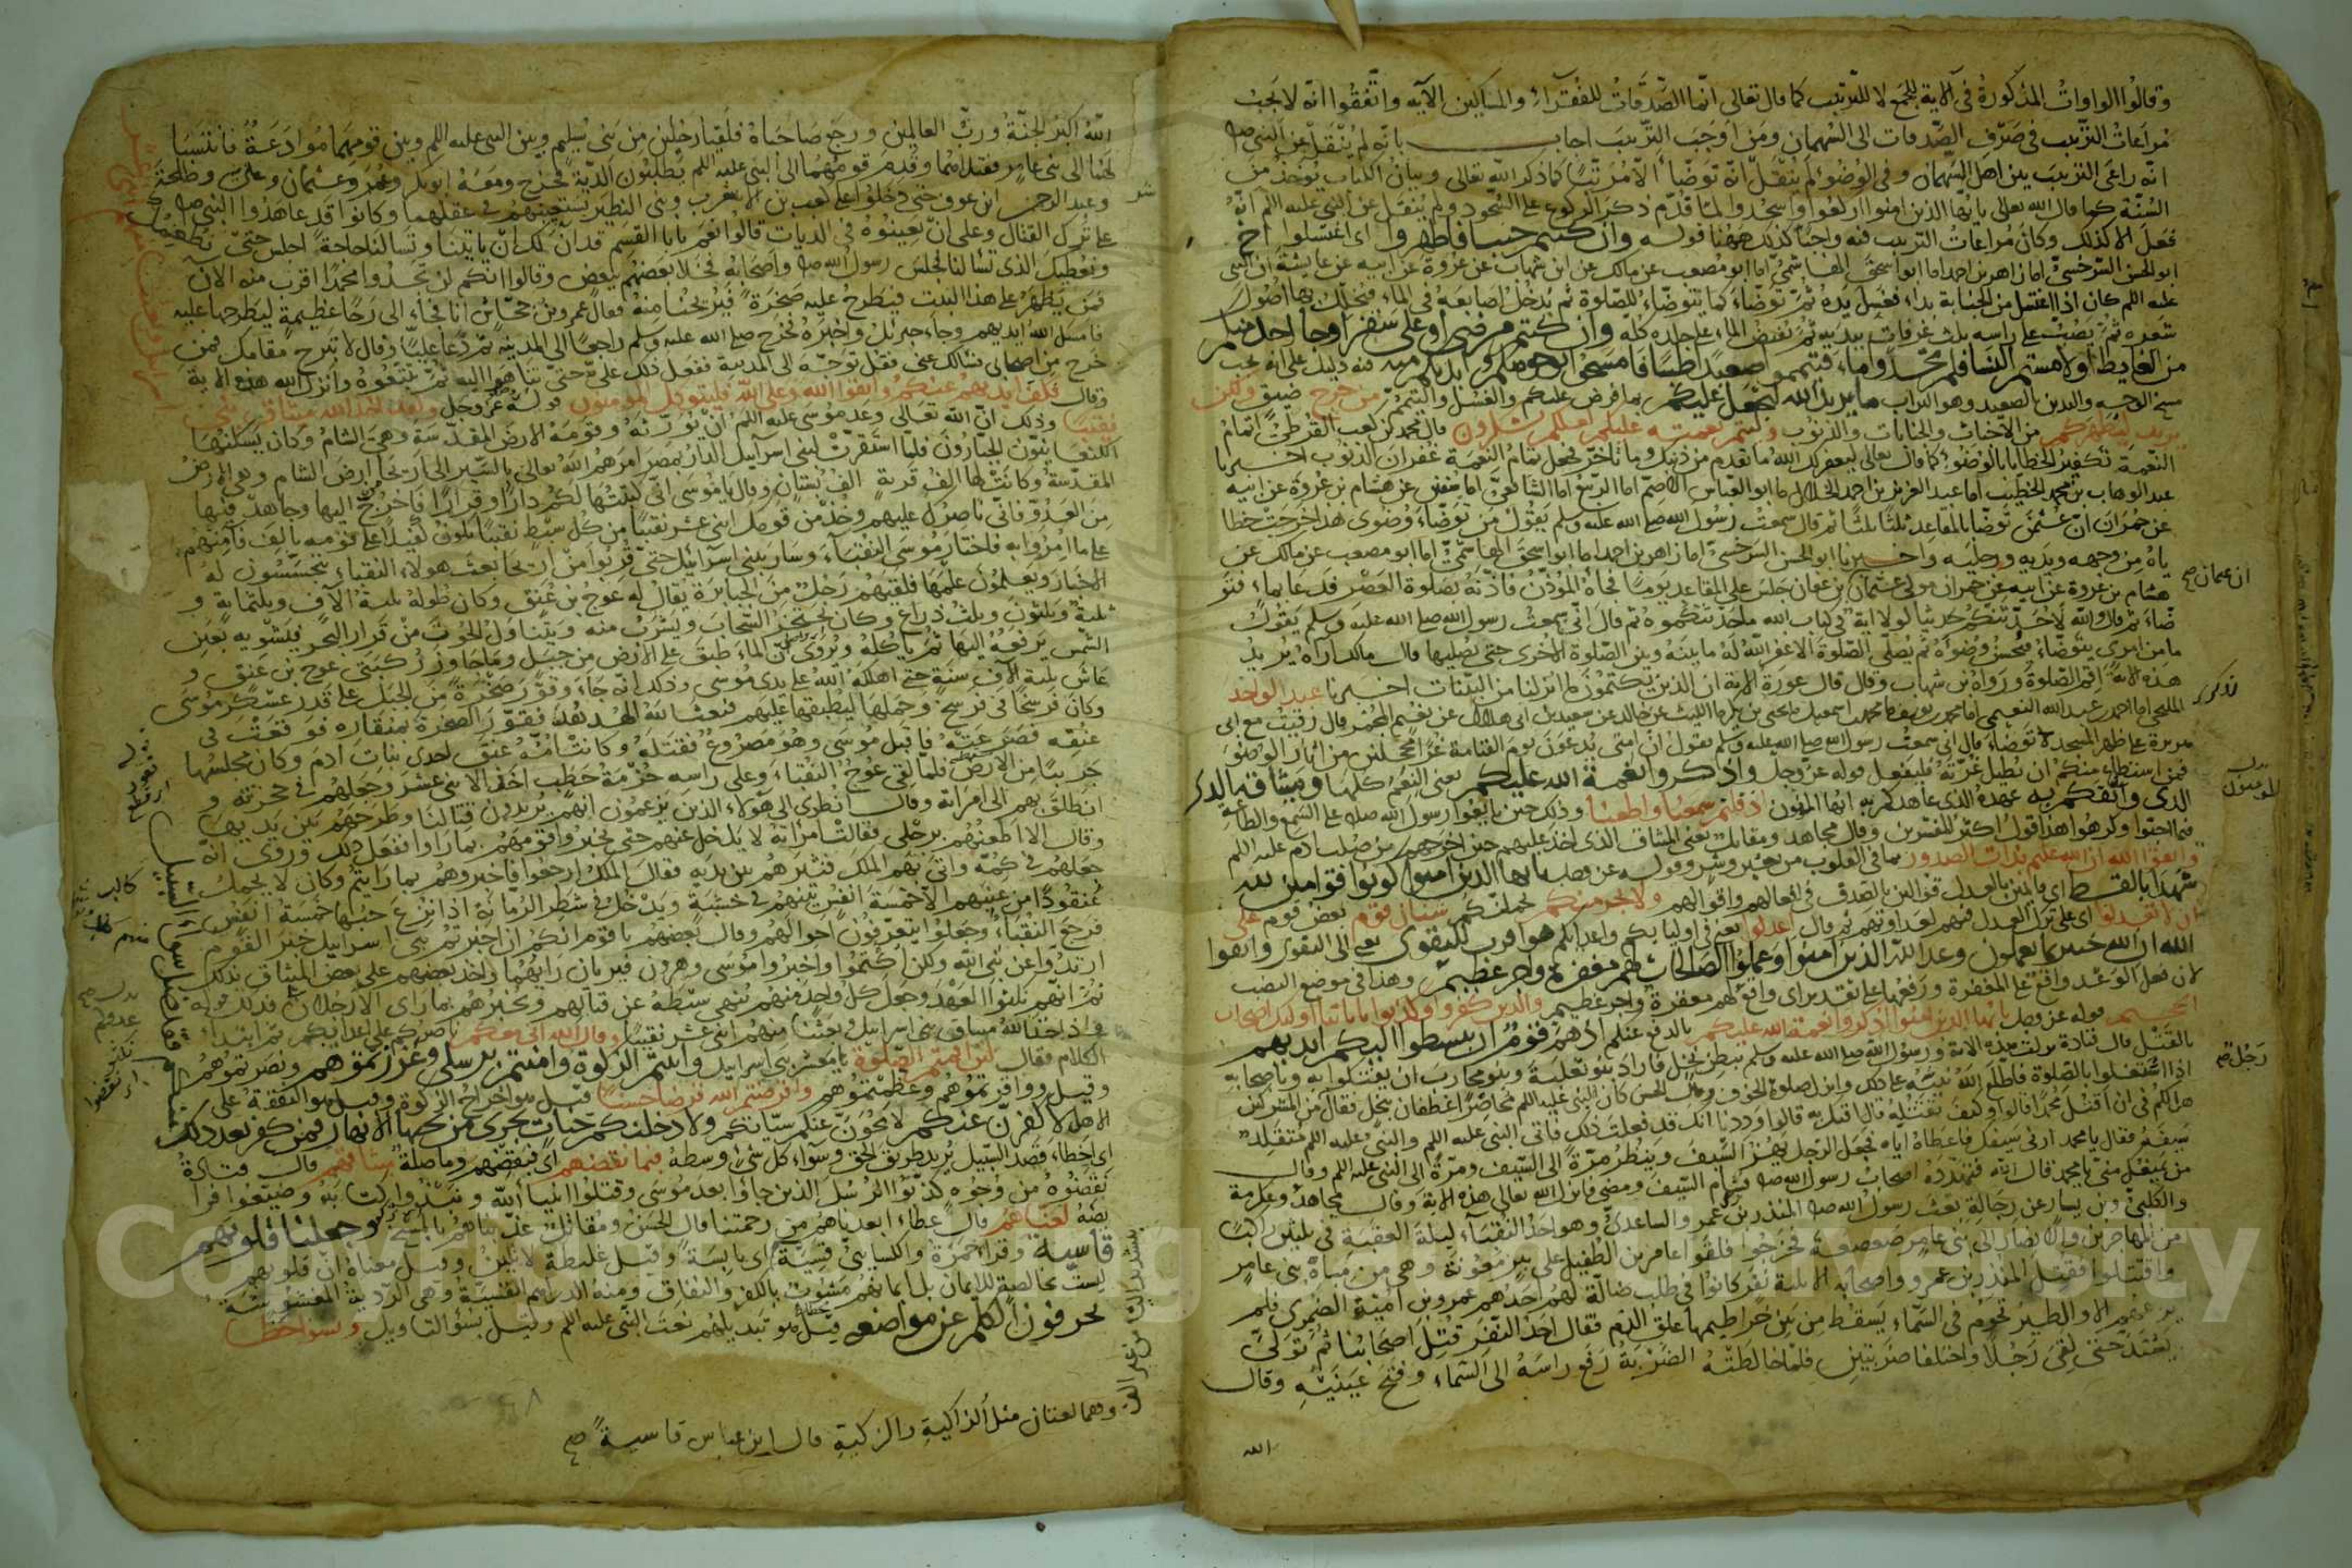 وقالوا الواوات المذكورة في الآية للجمع لا للترتيب كما قال تعالى انما الصدقات للفقراء والمساكين الآية واتفقوا انه لا يجب
مراعات الترتيب في صرف الصدقات الى السهمان ومن اوجب الترتيب اجاب بانه لم ينقل عن النبي صلى
انه راعى الترتيب بين اهل السهمان وفي الوضوء لم ينقل انه توضأ الا مرتبا كما ذكر الله تعالى وبيان الكتاب يؤخذ من
السنة كما قال الله تعالى يا ايها الذين امنوا اركعوا واسجدوا لما قدم ذكر الركوع على السجود ولم ينقل عن النبي عليه اللم انه
فعل الا كذلك وكان مراعات الترتيب فيه واجبا كذلك ههنا قوله وان كنتم جنبا فاطهروا اي اغتسلوا اخ
ابو الحسن السرخسي اما زاهر بن احمد اما ابو اسحق الهاشمي اما ابو مصعب عن مالك عن ابن شهاب عن عروة عن ابيه عن عايشة ان النبي
عليه اللم كان اذا اغتسل من الجنابة بداء فغسل يده ثم توضاء كما يتوضاء للصلوة ثم يدخل اصابعه في الماء فيخلل بها اصول
شعره ثم يصب على راسه ثلث غرفات بيديه ثم يفيض الماء على جلده كله وان كنتم مرضى او على سفر او جا احد منكم
من الغايط او لامستم النسا فلم تجدوا ماء فتيمموا صعيدا طيبا فامسحوا بوجوهكم وايديكم منه فيه دليل على انه يجب
مسح الوجه واليدين بالصعيد وهو التراب ما يريد الله ليجعل عليكم بما فرض عليكم والغسل والتيمم من حرج ضيق ولكن
يريد ليطهركم من الاحداث والجنابات والذنوب وليتم نعمته عليكم لعلكم تشكرون قال محمد بن كعب القرظي اتمام
النعمة تكفير الخطايا بالوضوء كما قال تعالى ليغفر لك الله ما تقدم من ذنبك وما تاخر فجعل تمام النعمة غفران الذنوب اخبرنا
عبد الوهاب بن محمد الخطيب اما عبد العزيز بن احمد الخلال اما ابو العباس الاصم اما الربيع اما الشافعي اما سفين عن هشام بن عروة عن ابيه
عن حمران ان عثمن توضا بالمقاعد ثلثا ثلثا ثم قال سمعت رسول الله صلى الله عليه وسلم يقول من توضاء وضوى هذا خرجت خطا
ياه من وجهه ويديه ورجليه واخبرنا ابو الحسن السرخسي اما زاهر بن احمد اما ابو اسحق الهاشمي اما ابو مصعب عن مالك عن
هشام بن عروة عن ابيه عن حمران مولى عثمان بن عفان جلس على المقاعد يوما فجاه المؤذن فاذنه بصلوة العصر فدعا بماء فتو
ضاء ثم قال والله لاحدثنكم حديثا لولا اية في كتاب الله ما حدثتكموه ثم قال اني سمعت رسول الله صلى الله عليه وسلم يقول
ما من امرى يتوضاء فيحسن وضوءه ثم يصلي الصلوة الا غفر الله له ما بينه وبين الصلوة الاخرى حتى يصليها قال مالك اراه يريد
هذه الاية اقم الصلوة ورواه بن شهاب وقال قال عروة الاية ان الذين يكتمون ما انزلنا من البينات اخبرنا عبد الواحد
المليحي اما احمد بن عبد الله النعيمي اما محمد بن يوسف ما محمد بن اسمعيل ما يحيى بن بكير ما الليث عن خالد عن سعيد بن ابي هلال عن نعيم المجمر قال رقيت مع ابي
هريرة على ظهر المسجد فتوضاء قال اني سمعت رسول الله صلى الله عليه وسلم يقول ان امتي يدعون يوم القيامة غرا محجلين من اثار الوضوء
فمن استطاع منكم ان يطيل غرته فليفعل قوله عز وجل واذكروا نعمة الله عليكم يعني النعم كلها وميثاقه الذي
الذي واثقكم به عهده الذي عاهدكم به ايها المؤمنون اذ قلتم سمعنا واطعنا وذلك حين بايعوا رسول الله صلى على السمع والطاعة
فيما احبوا وكرهوا هذا قول اكثر المفسرين وقال مجاهد ومقاتل يعني الميثاق الذي اخذ عليهم حين اخرجهم من صلب ادم عليه اللم
واتقوا الله ان الله عليم بذات الصدور بما في القلوب من خير وشر وقوله عز وجل يا ايها الذين امنوا كونوا قوامين لله
شهدا بالقسط اي قايمين بالعدل قوالين بالصدق في افعالهم واقوالهم ولا يجرمنكم يحملنكم شنان قوم بغض قوم على
ان لا تعدلوا اى على ترك العدل فيهم لعداوتهم ثم قال اعدلوا يعني في اوليايكم واعدايكم هو اقرب للتقوى يعني الى التقوى واتقوا
الله ان الله خبير بما تعملون وعد الله الذين امنوا وعملوا الصالحات لهم مغفرة واجر عظيم وهذا في موضع النصب
لان فعل الوعد واقع على المغفرة ورفعها على تقدير اى وقال لهم مغفرة واجر عظيم والذين كفروا وكذبوا باياتنا اوليك اصحاب
الجحيم قوله عز وجل يا ايها الذين امنوا اذكروا نعمة الله عليكم بالدفع عنكم اذ هم قوم ان يبسطوا اليكم ايديهم
بالقتل قال قتادة نزلت هذه الاية ورسول الله صلى الله عليه وسلم ببطن نخل فاراد بنو ثعلبة وبنو محارب ان يفتكوا به وباصحابه
اذا اشتغلوا بالصلوة فاطلع الله نبيه على ذلك وانزل صلوة الخوف وقال الحسن كان النبي عليه اللم محاصرا غطفان بنخل فقال من المشركين
هل لكم في ان اقتل محمدا قالوا وكيف تقتله قال افتك به قالوا وددنا انك قد فعلت ذلك فاتى النبي عليه اللم والنبي عليه اللم متقلد
سيفه فقال يا محمد ارني سيفك فاعطاه اياه فجعل الرجل يهز السيف وينظر مرة الى السيف ومرة الى النبي عليه اللم وقال
من يمنعك مني يا محمد قال الله فتهدده اصحاب رسول الله صلى فشام السيف ومضى فانزل الله تعالى هذه الاية وقال مجاهد وعكرمة
والكلبي وبن يسار عن رجاله بعث رسول الله صلى المنذر بن عمرو الساعدي وهو احد النقباء ليلة العقبة في ثلثين راكبا
من المهاجرين والانصار الى بني عامر بن صعصعة فخرجوا فلقوا عامر بن الطفيل على بير معونة وهي من مياه بني عامر
واقتتلوا فقتل المنذر بن عمرو واصحابه الا ثلثة نفر كانوا في طلب ضالة لهم احدهم عمرو بن امية الضمري فلم
يرعهم الا والطير تحوم في السماء يسقط من بين خراطيمها علق الدم فقال احد النفر قتل اصحابنا ثم تولى
يشتد حتى لقي رجلا واختلفا ضربتين فلما خالطته الضربة رفع راسه الى السماء وفتح عينيه وقال
الله
ان عثمان صح
المؤمنون
رجل صح
الله اكبر الجنة ورب العالمين ورجع صاحباه فلقيا رجلين من بني سليم وبين النبي عليه اللم وبين قومهما موادعة فانتسبا
لهما الى بني عامر فقتلاهما وقدم قومهما الى النبي عليه اللم يطلبون الدية فخرج ومعه ابو بكر وعمر وعثمان وعلي وطلحة
وعبد الرحمن ابن عوف حتى دخلوا على كعب بن الاشرف وبني النضير يستعينهم في عقلهما وكانوا قد عاهدوا النبي صلى
على ترك القتال وعلى ان يعينوه في الديات قالوا نعم يابا القسم قد آن لك ان تاتينا وتسالنا حاجة اجلس حتى نطعمك
ونعطيك الذي تسالنا فجلس رسول الله صلى واصحابه فخلا بعضهم ببعض وقالوا انكم لن تجدوا محمدا اقرب منه الان
فمن يظهر على هذا البيت فيطرح عليه صخرة فيريحنا منه فقال عمرو بن جحاش انا فجاء الى رحا عظيمة ليطرحها عليه
فامسك الله ايديهم وجاء جبريل واخبره فخرج صلى الله عليه وسلم راجعا الى المدينة ثم دعا عليا وقال لا تبرح مقامك فمن
خرج من اصحابي فسالك عني فقل توجه الى المدينة ففعل ذلك علي حتى تناهوا اليه ثم تبعوه وانزل الله هذه الاية
وقال فكف ايديهم عنكم واتقوا الله وعلى الله فليتوكل المؤمنون قوله عز وجل ولقد اخذ الله ميثاق بني
نقيبا وذلك ان الله تعالى وعد موسى عليه اللم ان يورثه وقومه الارض المقدسة وهي الشام وكان يسكنها
الكنعانيون الجبارون فلما استقرت لبني اسرآييل الدار بمصر امرهم الله تعالى بالسير الى اريحا ارض الشام وهي الارض
المقدسة وكانت لها الف قرية الف بستان وقال يا موسى اني كتبتها لكم دارا وقرارا فاخرج اليها وجاهد فيها
من العدو فاني ناصرك عليهم وخذ من قومك اثني عشر نقيبا من كل سبط نقيبا يكون كفيلا على قومه بالوفاء
على ما امروا به فاختار موسى النقباء وسار ببني اسرآئيل حتى قربوا من اريحا بعث هولاء النقباء يتجسسون له
الاخبار ويعلمون علمها فلقيهم رجل من الجبابرة يقال له عوج بن عنق وكان طوله ثلثة الآف وثلثماية و
ثلثة وثلثون وثلث ذراع وكان يحتجز السحاب ويشرب منه ويتناول الحوت من قرار البحر فيشويه بعين
الشمس يرفعه اليها ثم ياكله ويروى ان الماء طبق على الارض من جبل وما جاوز ركبتي عوج بن عنق و
عاش ثلثة الآف سنة حتى اهلكه الله على يدى موسى وذلك انه جاء وقور صخرة من الجبل على قدر عسكر موسى
وكان فرسخا في فرسخ وحملها ليطبقها عليهم فبعث الله الهدهد فقور الصخرة بمنقاره فوقعت في
عنقه فصرعته فاقبل موسى وهو مصروع فقتله وكانت امه عنق احدى بنات ادم وكان مجلسها
جريبا من الارض فلما لقي عوج النقباء وعلى راسه حزمة حطب اخذ الاثني عشر وجعلهم في حجزته و
انطلق بهم الى امراته وقال انظري الى هولاء الذين يزعمون انهم يريدون قتالنا وطرحهم بين يديها
وقال الا اطحنهم برجلي فقالت امراته لا بل خل عنهم حتى يخبروا قومهم بما راوا ففعل ذلك وروى انه
جعلهم في كمه واتى بهم الملك فنثرهم بين يديه فقال الملك ارجعوا فاخبروهم بما رايتم وكان لا يحمل
عنقودا من عنبهم الا خمسة انفس بينهم في خشبة ويدخل في شطر الرمانة اذا نزع حبها خمسة انفس
فرجع النقباء وجعلوا يتعرفون احوالهم وقال بعضهم يا قوم انكم ان اخبرتم بني اسرائيل خبر القوم
ارتدوا عن نبي الله ولكن اكتموا واخبروا موسى وهرون فيريان رايهما واخذ بعضهم على بعض الميثاق بذلك
ثم انهم نكثوا العهد وجعل كل واحد منهم ينهى سبطه عن قتالهم ويخبرهم بما راى الا رجلان فذلك قوله
اخذ الله ميثاق بني اسرائيل وبعثنا منهم اثني عشر نقيبا وقال الله اني معكم ناصركم على اعدايكم ثم ابتداء
الكلام فقال لئن اقمتم الصلوة يا معشر بني اسراييل وآتيتم الزكوة وامنتم برسلي وعزرتموهم ونصرتموهم
وقيل ووقرتموهم وعظمتموهم واقرضتم الله قرضا حسنا قيل هو اخراج الزكوة وقيل هو النفقة على
الاهل لاكفرن عنكم لامحون عنكم سياتكم ولادخلنكم جنات تجري من تحتها الانهار فمن كفر بعد ذلك
اى اخطاء قصد السبيل يريد طريق الحق وسواء كل شى وسطه فبما نقضهم اى فبنقضهم وما صلة ميثاقهم قال قتادة
نقضوه من وجوه كذبوا الرسل الذين جاؤا بعد موسى وقتلوا انبياء الله ونبذوا كتابه وضيعوا فرا
يضه لعناهم قال عطاء ابعدناهم من رحمتنا قال الحسن ومقاتل عذبناهم بالمسخ وجعلنا قلوبهم
قاسية وقرا حمزة والكسايي قسية اى يابسة وقيل غليظة لا تلين وقيل معناه ان قلوبهم
ليست بخالصة للايمان بل ايمانهم مشوبة بالكفر والنفاق ومنه الدراهم القسية وهي الردية المغشوشة
يحرفون الكلم عن مواضعه قيل هو تبديلهم نعت النبي عليه اللم وقيل بسؤ التاويل ونسوا حظا
وهما لغتان مثل الزاكية والزكية قال ابن عباس قاسية صح
منكم فقد ضل سواء السبيل